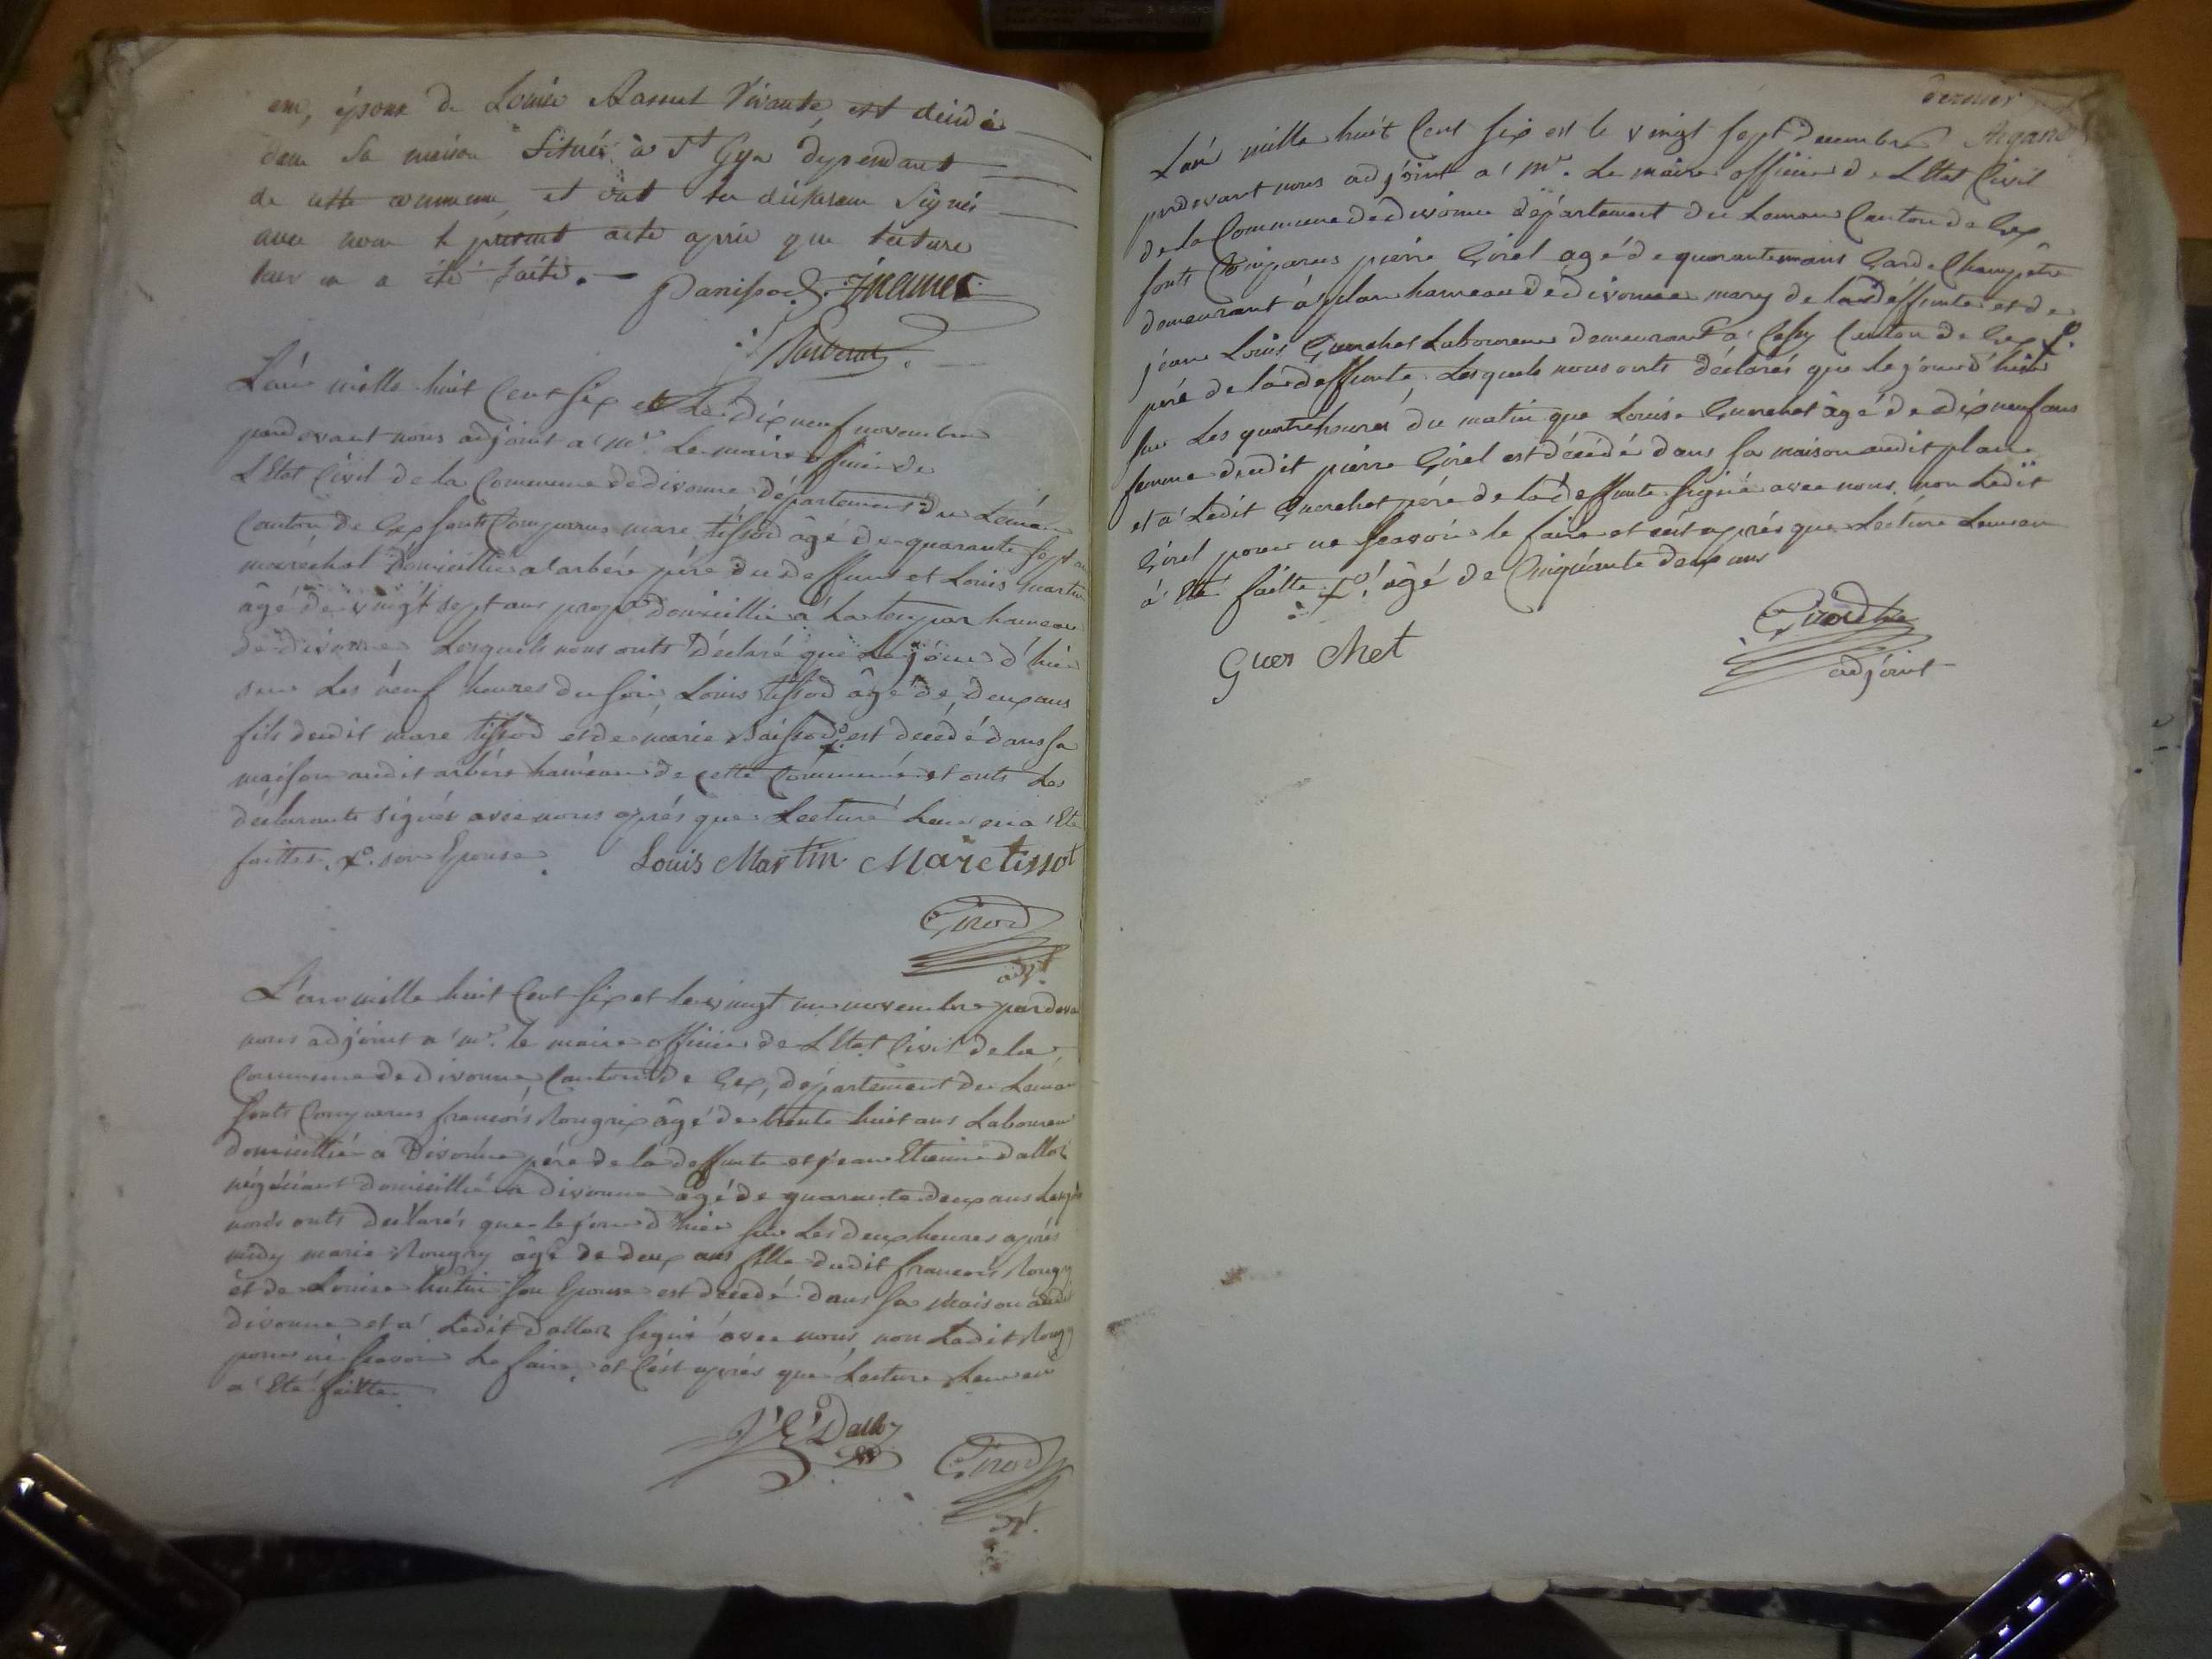 ans, époux de Louise Rassul Vivante, est décidé
dans sa maison située à St Gyx dependant
de cette commune, et ont les déclarans signés
avec nous le présent acte après que lecture
leur en a été faite.
Panissod.
L'an mille huit Cent six et Le dix neuf novembre
pardevant nous adjoint a mr. Le maire officier de
L'Etat Civil de la Commune de divonne département du Léman
Canton de Gex sonts Comparus marc tissod âgé de quarante sept ans
maréchal domicillié a arbére pére du deffunt et Louis martin
âgé de vingt sept ans propre domicillié a hameau
de divonne Lesquels nous onts déclaré que Le jour d'hier
sur Les neuf heures du soir, Louis tissod âgé de deux ans
fils dudit marc tissod et de marie est decedé dans sa
maison audit arbére hameau de cette Commune et onts Les
déclarants signés avec nous aprés que Lecture Leur en a Eté
faitte. x. son Epouse.
Louis Martin Marc tissot
Girod
adjt.
L'an mille huit Cent six et le vingt un novembre pardeva
nous adjoint a mr. le maire officier de L'Etat Civil de la
Commune de divonne Canton de Gex, département du Leman
sonts Comparus francois Rougrix âgé de trente huit ans Laboureur
domicillié a Divonne pére de la deffunte et jean Etienne dalloz
négociant domicillié a divonne âgé de quarante deux ans Lesq
nous onts declarés que le jour d'hier sur Les deux heures aprés
midy marie Rougry âgé de deux ans fille dudit francois Rougry
et de Louise hutin son Epouse est decedé dans sa Maison audit
divonne et a Ledit dalloz signé avec nous, non Ledit Rougy
pour ne scavoir Le faire, et C'est aprés que Lecture Leur en
a Eté faitte.
J E Dalloz
Girod
adjt.
dernier
L'an mille huit Cent six est le vingt sept decembre
pardevant nous adjoint a mr. Le maire officier de L'Etat Civil
de la Commune de divonne département du Leman Canton de Gex
sonts Comparus pierre Girel agé de quarante ans Garde Champêtre
demeurant à plan hameau de divonne mary de la deffunte et de
jean Louis Guerchet Laboureur demeurant à Cessy Canton de Gex x.
pére de la deffunte. Lesquels nous onts déclarés que le jour d'hier
sur Les quatre heures du matin que Louise Guerchet âgé de dix neuf ans
femme dudit pierre Girel est décédé dans sa maison audit plan
et a Ledit Guerchet pére de la deffunte signé avec nous non Ledit
Girel pour ne scavoir le faire et c'est aprés que Lecture Leur en
a Eté faitte. x. âgé de Cinquante deux ans
Guer chet
Girod
adjoint